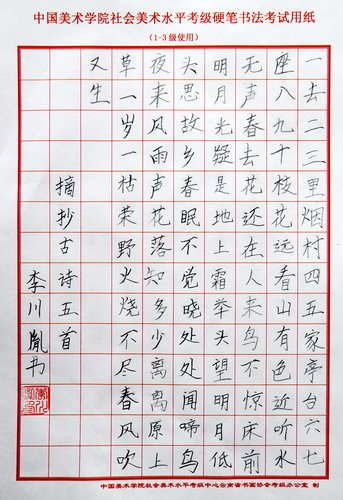 中国美术学院社会美术水平考级硬笔书法考试用纸
（1-3级使用）
一去二三里烟村四五家亭台六七
座八九十枝花远看山有色近听水
无声春去花还在人来鸟不惊床前
明月光疑是地上霜举头望明月低
头思故乡春眠不觉晓处处闻啼鸟
夜来风雨声花落知多少离离原上
草一岁一枯荣野火烧不尽春风吹
又生
摘抄古诗五首
李川胤书
中国美术学院社会美术水平考级中心云南省书画协会考级办公室 制